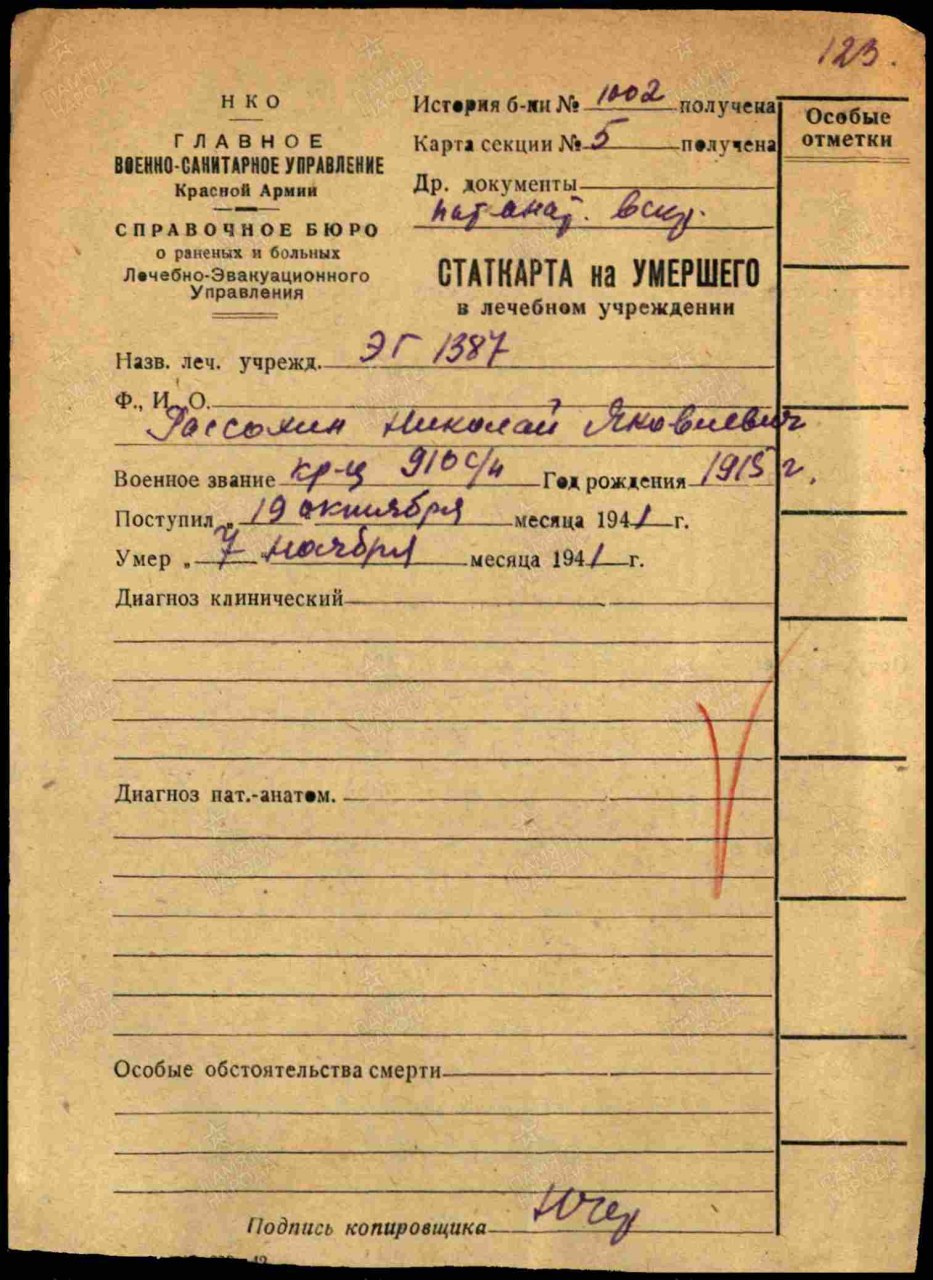 123.
НКО
ГЛАВНОЕ
ВОЕННО-САНИТАРНОЕ УПРАВЛЕНИЕ
Красной Армии
СПРАВОЧНОЕ БЮРО
о раненых и больных
Лечебно-Эвакуационного
Управления
История б-ни № 1002 получена
Карта секции № 5 получена
Др. документы
пат. анат. вскр.
Особые
отметки
СТАТКАРТА на УМЕРШЕГО
в лечебном учреждении
Назв. леч. учрежд. ЭГ 1387
Ф., И., О.
Рассохин Николай Яковлевич
Военное звание кр-ц 910 с/п Год рождения 1915 г.
Поступил „ 19 октября месяца 1941 г.
Умер „ 7 ноября месяца 1941 г.
Диагноз клинический
Диагноз пат.-анатом.
Особые обстоятельства смерти
Подпись копировщика
ПАМЯТЬ НАРОДА